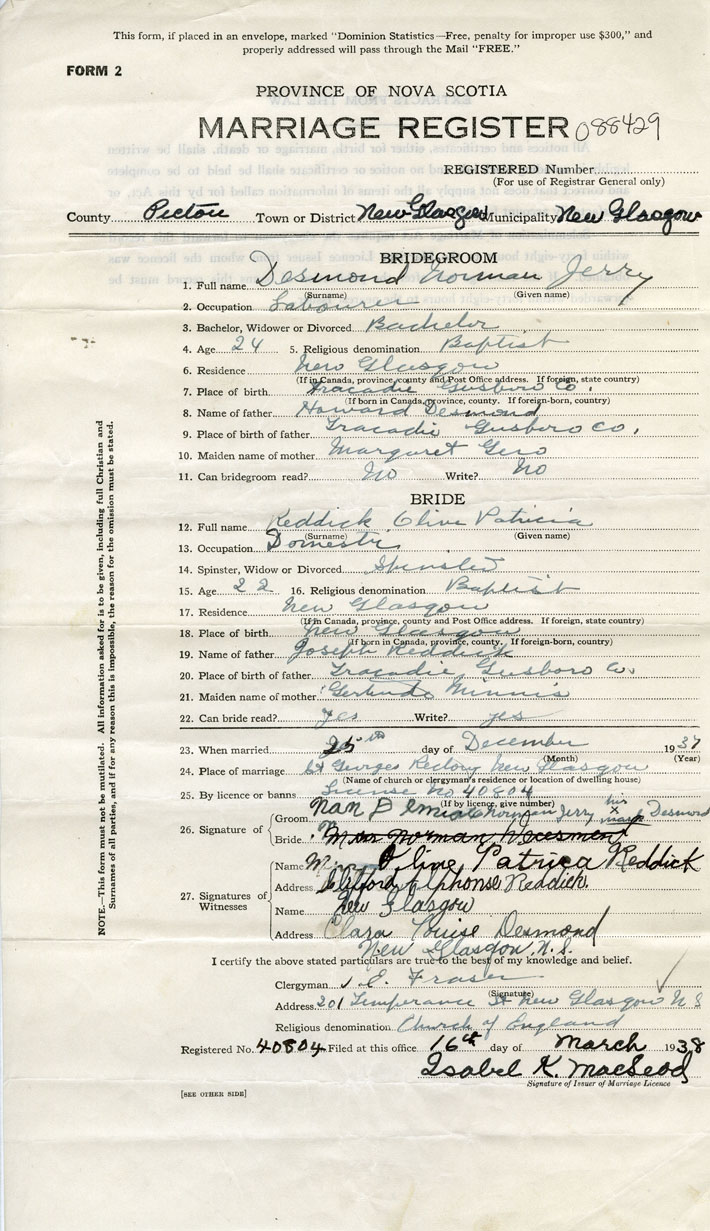 This form, if placed in an envelope, marked "Dominion Statistics—Free, penalty for improper use $300," and
properly addressed will pass through the Mail "FREE."
FORM 2
PROVINCE OF NOVA SCOTIA
MARRIAGE REGISTER 088429
REGISTERED Number
(For use of Registrar General only)
County Pictou Town or District New Glasgow Municipality New Glasgow
BRIDEGROOM
1. Full name Desmond Norman Jerry
(Surname) (Given name)
2. Occupation Labourer
3. Bachelor, Widower or Divorced Bachelor
4. Age 24 5. Religious denomination Baptist
6. Residence New Glasgow
(If in Canada, province, county and Post Office address. If foreign, state country)
7. Place of birth Tracadie Gusboro Co.
(If born in Canada, province, county. If foreign-born, county)
8. Name of father Howard Desmond
9. Place of birth of father Tracadie Gusboro Co.
10. Maiden name of mother Margaret Gero
11. Can bridegroom read? No Write? No
BRIDE
12. Full name Reddick Olive Patricia
(Surname) (Given name)
13. Occupation Domestic
14. Spinster, Widow or Divorced Spinster
15. Age 22 16. Religious denomination Baptist
17. Residence New Glasgow
(If in Canada, province, county and Post Office address. If foreign, state country)
18. Place of birth New Glasgow
(If born in Canada, province, county. If foreign-born, county)
19. Name of father Joseph Reddick
20. Place of birth of father Tracadie Gusboro Co.
21. Maiden name of mother Gertrude Minnis
22. Can bride read? yes Write? yes
23. When married 25th day of December 1937
(Month) (Year)
24. Place of marriage St Georges Rectory New Glasgow
(Name of church or clergyman's residence or location of dwelling house)
25. By licence or banns License No 40804
(If by licence, give number)
26. Signature of Groom Norman Jerry his x mark Desmond
Bride
27. Signatures of Witnesses
Name Olive Patrica Reddick
Address Clifford Alphonse Reddick.
Name New Glasgow
Address Clara Louise Desmond
New Glasgow, N.S.
I certify the above stated particulars are true to the best of my knowledge and belief.
Clergyman J. E. Fraser
(Signature)
Address 201 Temperance St New Glasgow N S
Religious denomination Church of England
Registered No. 40804 Filed at this office 16th day of March 1938
Isabel K. MacLeod
Signature of Issuer of Marriage Licence
[SEE OTHER SIDE]
NOTE.—This form must not be mutilated. All information asked for is to be given, including full Christian and
Surnames of all parties, and if for any reason this is impossible, the reason for the omission must be stated.